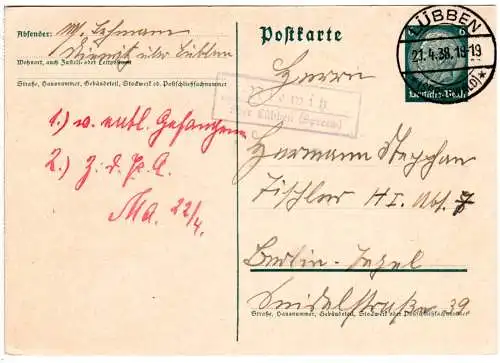 Absender: M. Lehmann
Biewitz über Lübben
Wohnort, auch Zustell- oder Leitpostamt
Straße, Hausnummer, Gebäudeteil, Stockwerk od. Postschließfachnummer
Postkarte
LÜBBEN
21.4.38.19-19
6
Deutsches Reich
über Lübben (Spreew)
1.) v. entl. Gefangenen
2.) Z. d. P. A.
Ma. 22/4.
Herrn
Hermann Stephan
Tischler H I. Abt. 7
Berlin-Tegel
Seidelstraße 39
Straße, Hausnummer, Gebäudeteil, Stockwerk oder Postschließfachnummer